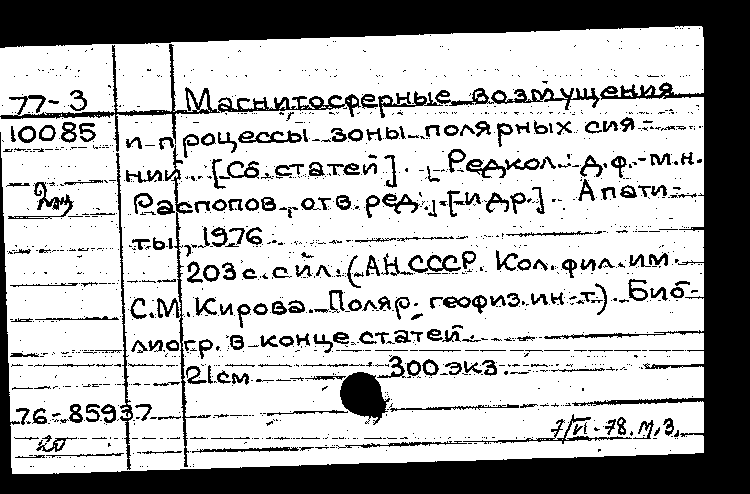 77-3 Магнитосферные возмущения
10085 и процессы зоны полярных сия-
ний. [Сб. статей]. Редкол.: д.ф.-м.н.
Распопов, отв. ред., [и др.]. Апати-
ты, 1976.
203 с. с ил. (АН СССР. Кол. фил. им.
С.М. Кирова. Поляр. геофиз. ин-т). Биб-
лиогр. в конце статей.
21 см. 300 экз.
76-85937
7/VI-78. М.З.